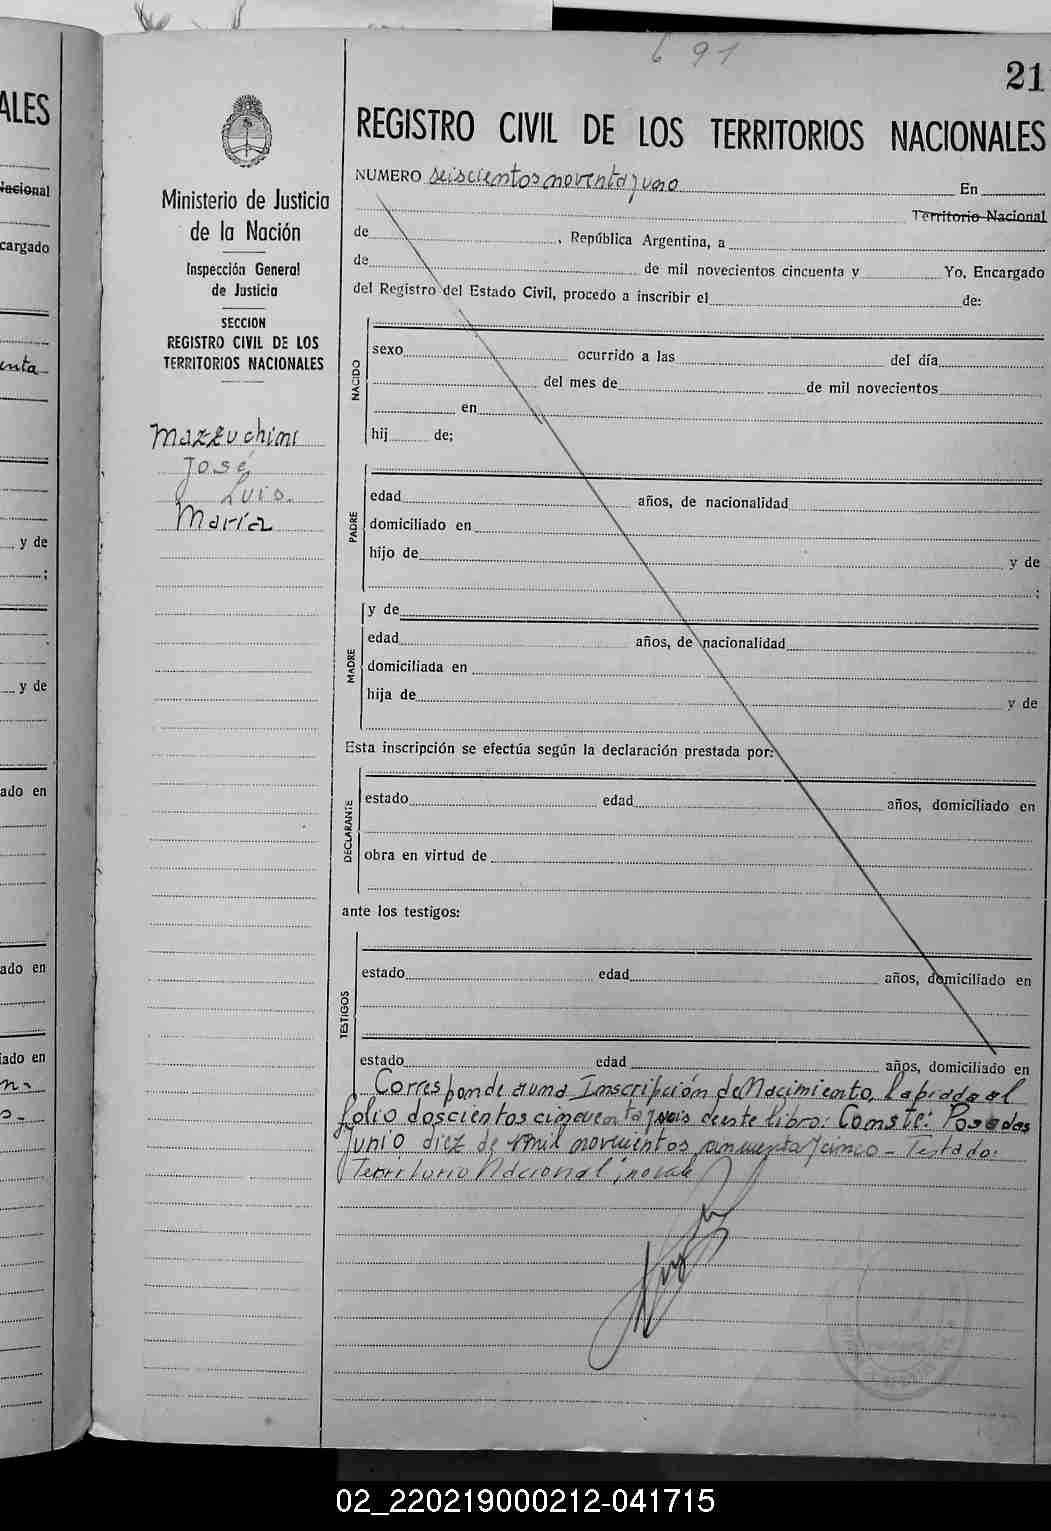 691
21
REGISTRO CIVIL DE LOS TERRITORIOS NACIONALES
Ministerio de Justicia
de la Nación
Inspección General
de Justicia
SECCION
REGISTRO CIVIL DE LOS
TERRITORIOS NACIONALES
Mazzuchini
José
Luis.
María
NUMERO seiscientos noventa y uno En
Territorio Nacional
de , República Argentina, a
de de mil novecientos cincuenta y Yo, Encargado
del Registro del Estado Civil, procedo a inscribir el de:
NACIDO
sexo ocurrido a las del día
del mes de de mil novecientos
en
hij de;
PADRE
edad años, de nacionalidad
domiciliado en
hijo de y de
;
MADRE
y de
edad años, de nacionalidad
domiciliada en
hija de y de
Esta inscripción se efectúa según la declaración prestada por:
DECLARANTE
estado edad años, domiciliado en
obra en virtud de
ante los testigos:
TESTIGOS
estado edad años, domiciliado en
estado edad años, domiciliado en
Corresponde a una Inscripción de Nacimiento, labrada al
folio doscientos cincuenta y seis de este libro: Conste: Posadas
Junio diez de mil novecientos cincuenta y cinco - Testado:
Territorio Nacional; no vale
ALES
Nacional
cargado
enta
y de
;
y de
ado en
ado en
iado en
02_220219000212-041715